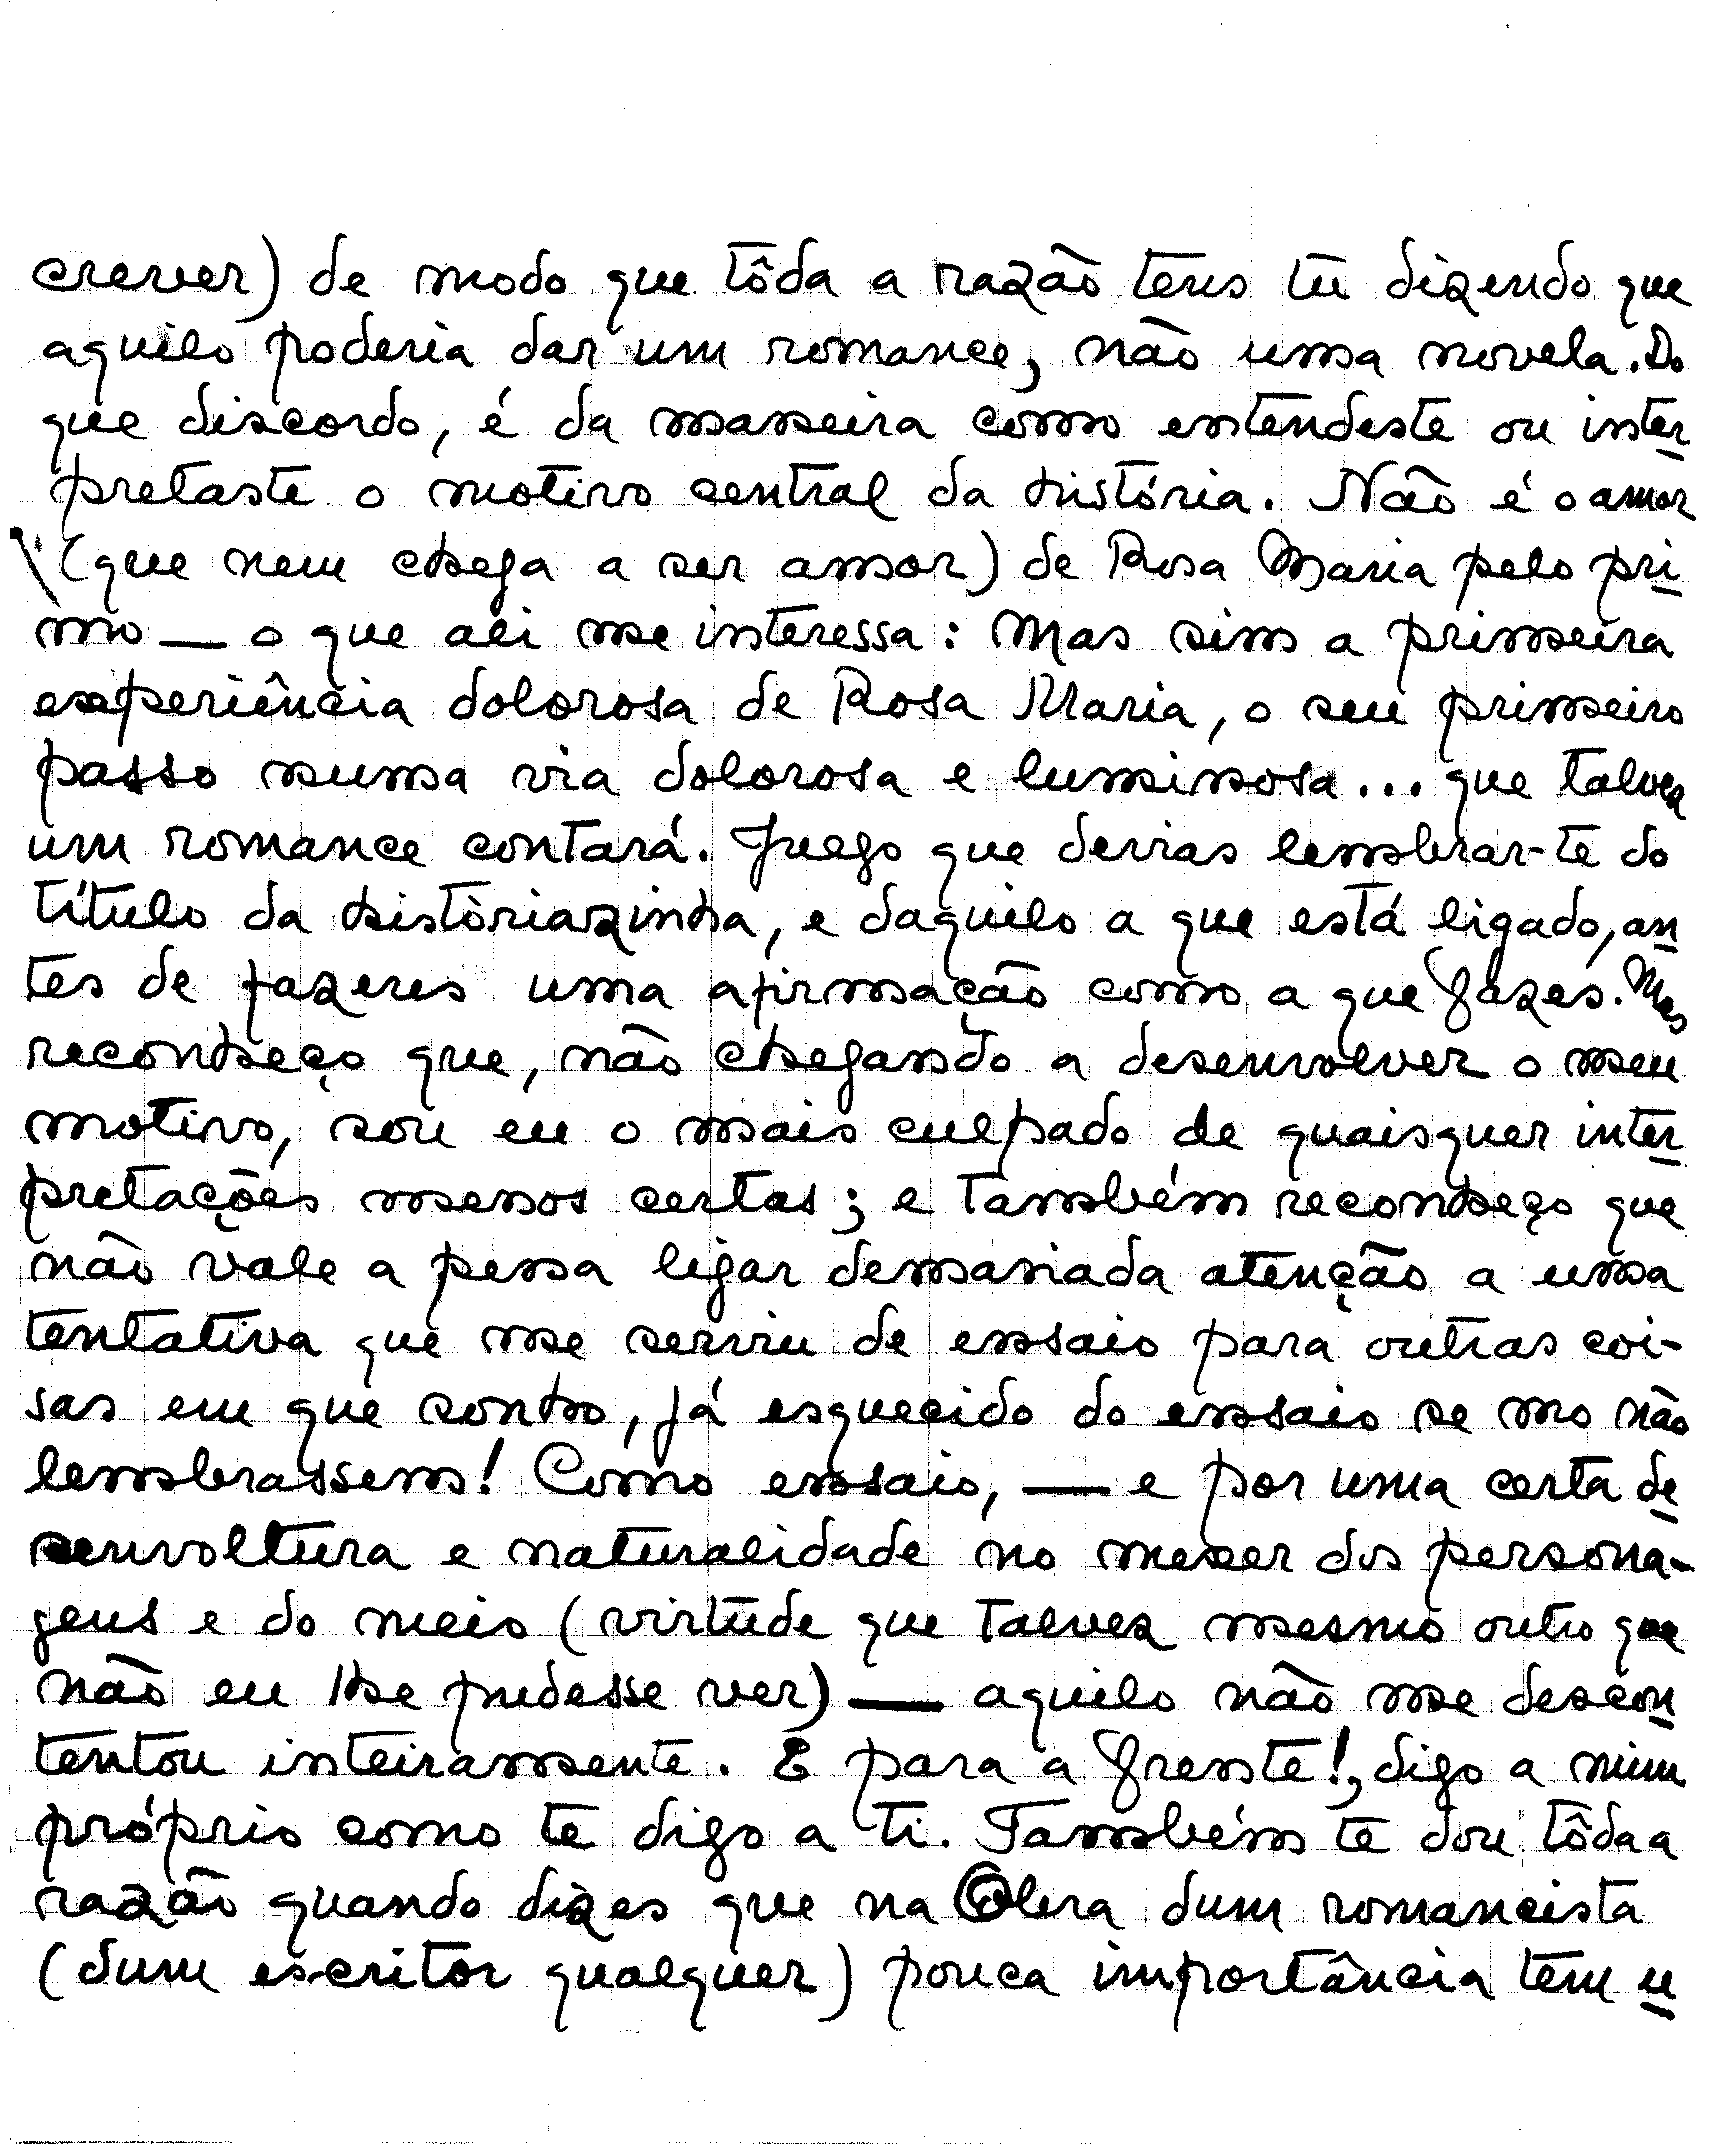 crever) de modo que tôda a razão tens tu dizendo que
aquilo poderia dar um romance, não uma novela. Do
que discordo, é da maneira como entendeste ou inter
pretaste o motivo central da história. Não é o amor
(que nem chega a ser amor) de Rosa Maria pelo pri
mo — o que ali me interessa: Mas sim a primeira
experiência dolorosa de Rosa Maria, o seu primeiro
passo numa via dolorosa e luminosa... que talvez
um romance contará. Julgo que devias lembrar-te do
título da històriazinha, e daquilo a que está ligado, an
tes de fazeres uma afirmação como a que fazes. Mas
reconheço que, não chegando a desenvolver o meu
motivo, sou eu o mais culpado de quaisquer inter
pretações menos certas; e também reconheço que
não vale a pena ligar demasiada atenção a uma
tentativa que me serviu de ensaio para outras coi-
sas em que sonho, já esquecido do ensaio se mo não
lembrassem! Como ensaio, — e por uma certa de
senvoltura e naturalidade no mexer dos persona-
gens e do meio (virtude que talvez mesmo outro que
não eu lhe pudesse ver) — aquilo não me descon
tentou inteiramente. E para a frente!, digo a mim
próprio como te digo a ti. Também te dou tôda a
razão quando dizes que na Obra dum romancista
(dum escritor qualquer) pouca importância tem u